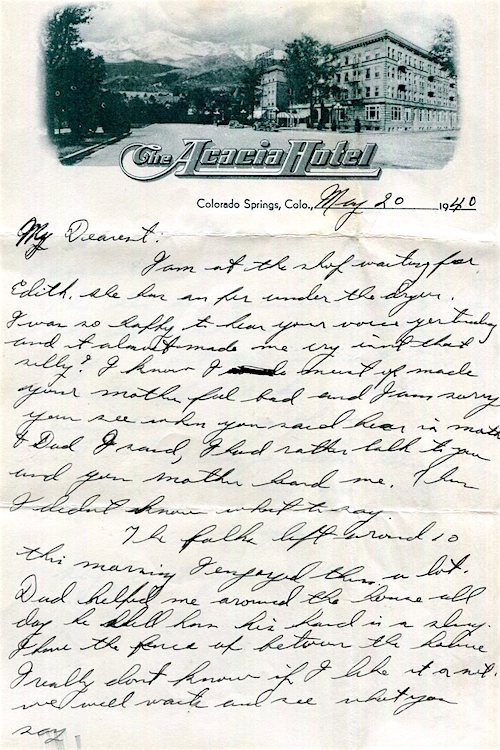 The Acacia Hotel
Colorado Springs, Colo., May 20 1940
My Dearest:
I am at the shop waiting for
Edith. she has an hr under the dryer.
I was so happy to hear your voice yesterday
and it almost made me cry isnt that
silly? I know I must of made
your mother feel bad and I am sorry
you see when you said here is mother
& Dad I said, I had rather talk to you
and your mother heard me. Then
I didn't know what to say.
The folks left around 10
this morning I enjoyed them a lot.
Dad helped me around the house all
day he still has his hand in a sling.
I have the fence up between the
I really dont know if I like it or not.
we will wait and see what you
say